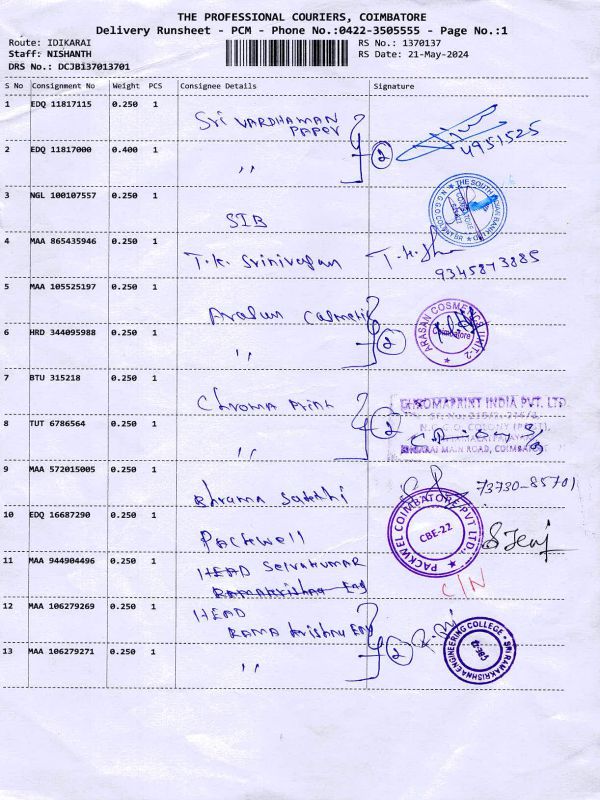 THE PROFESSIONAL COURIERS, COIMBATORE
Delivery Runsheet - PCM - Phone No.:0422-3505555 - Page No.:1
Route: IDIKARAI
Staff: NISHANTH
DRS No.: DCJB137013701
RS No.: 1370137
RS Date: 21-May-2024
S No Consignment No Weight PCS Consignee Details Signature
1 EDQ 11817115 0.250 1
Sri VARDHAMAN
PAPER
2 EDQ 11817000 0.400 1
,,
2
4951525
3 NGL 100107557 0.250 1
SIB
4 MAA 865435946 0.250 1
T.K. Srinivasan
9345873885
5 MAA 105525197 0.250 1
6 HRD 344095988 0.250 1
,,
2
ARASAN COSMETICS UNIT-2
Coimbatore
7 BTU 315218 0.250 1
Chroma Print
8 TUT 6786564 0.250 1
,,
2
CHROMAPRINT INDIA PVT. LTD
MAIN ROAD,
9 MAA 572015005 0.250 1
73730-85701
10 EDQ 16687290 0.250 1
Packwell
PACKWEL COIMBATORE PVT LTD.,
CBE-22
11 MAA 944904496 0.250 1
HEAD Selvakumar
Ramakrishna Eng
C/N
12 MAA 106279269 0.250 1
HEAD
Rama krishna Eng
13 MAA 106279271 0.250 1
,,
2
SRI RAMAKRISHNA ENGINEERING COLLEGE